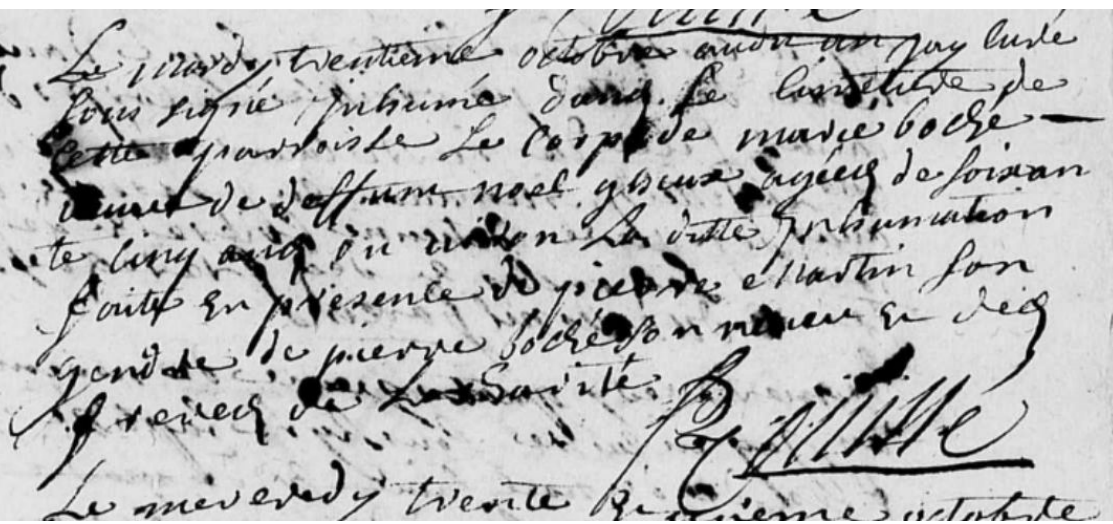 Le mardy trentieme octobre audit an jay curé
sous signé inhumé dans le cimetiere de
cette parroisse le corps de marie boché
veuve de deffunt noel agéeq de soixan
te cinq ans ou environ La ditte inhumation
faite en presence de pierre Martin son
gendre de pierre boché son neveu en deq
frereq de La Sainté.
Le meveredy trente &unieme octobre